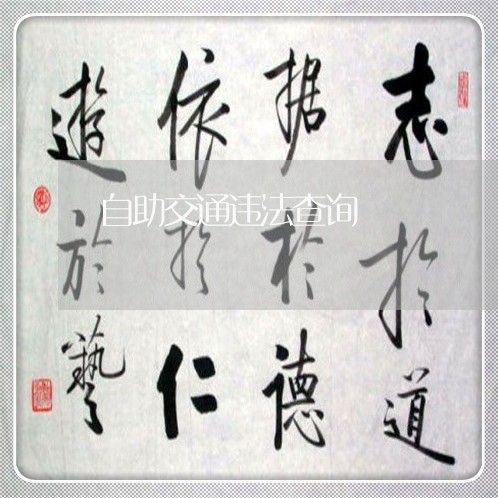 志於道
据於德
依於仁
遊於藝
自助交通违法查询